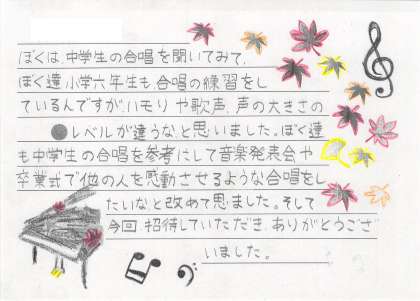 ぼくは、中学生の合唱を聞いてみて、
ぼく達小学六年生も、合唱の練習をし
ているんですが、ハモリや歌声、声の大きさの
レベルが違うな、と思いました。ぼく達
も中学生の合唱を参考にして音楽発表会や
卒業式で他の人を感動させるような合唱をし
たいなと改めて思ました。そして
今回、招待していただき、ありがとうござ
いました。